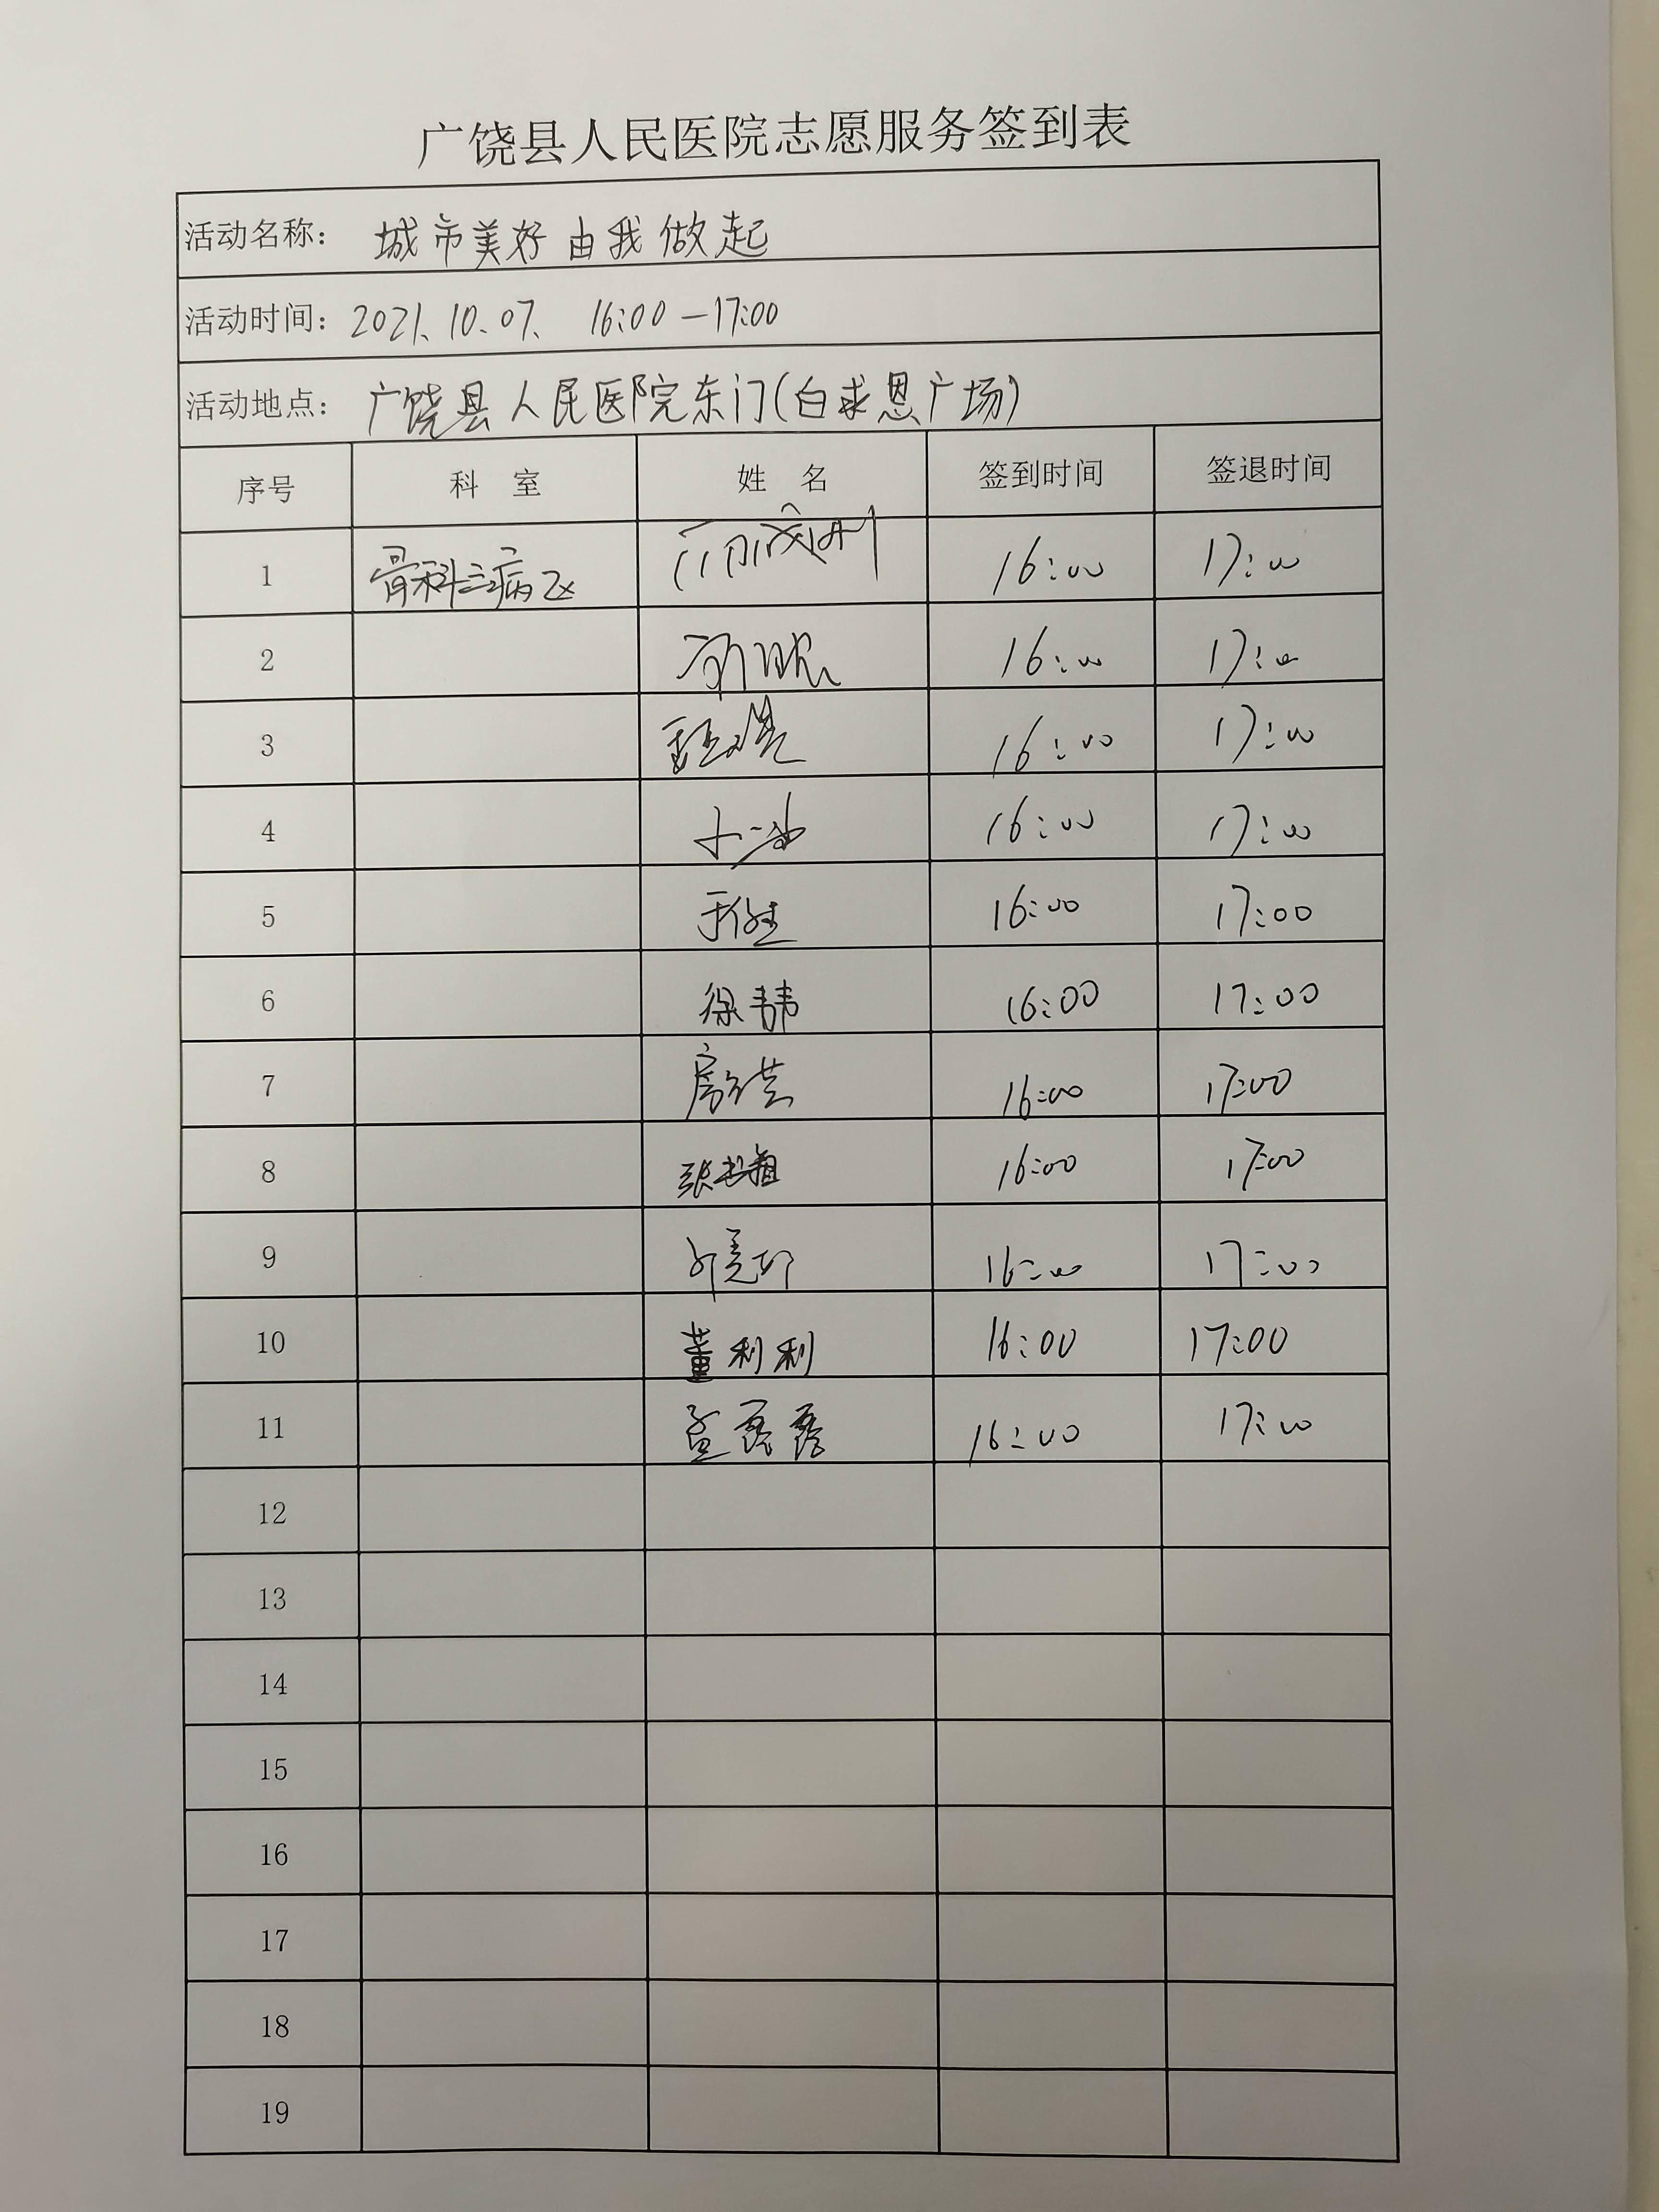 广饶县人民医院志愿服务签到表
活动名称： 城市美好 由我做起
活动时间：2021.10.07. 16:00—17:00
活动地点： 广饶县人民医院东门(白求恩广场)
序号 科 室 姓 名 签到时间 签退时间
1 骨科三病区 16:00 17:00
2 16:00 17:00
3 16:00 17:00
4 16:00 17:00
5 16:00 17:00
6 徐 16:00 17:00
7 房 16:00 17:00
8 张 16:00 17:00
9 16:00 17:00
10 董利利 16:00 17:00
11 孟露露 16:00 17:00
12
13
14
15
16
17
18
19